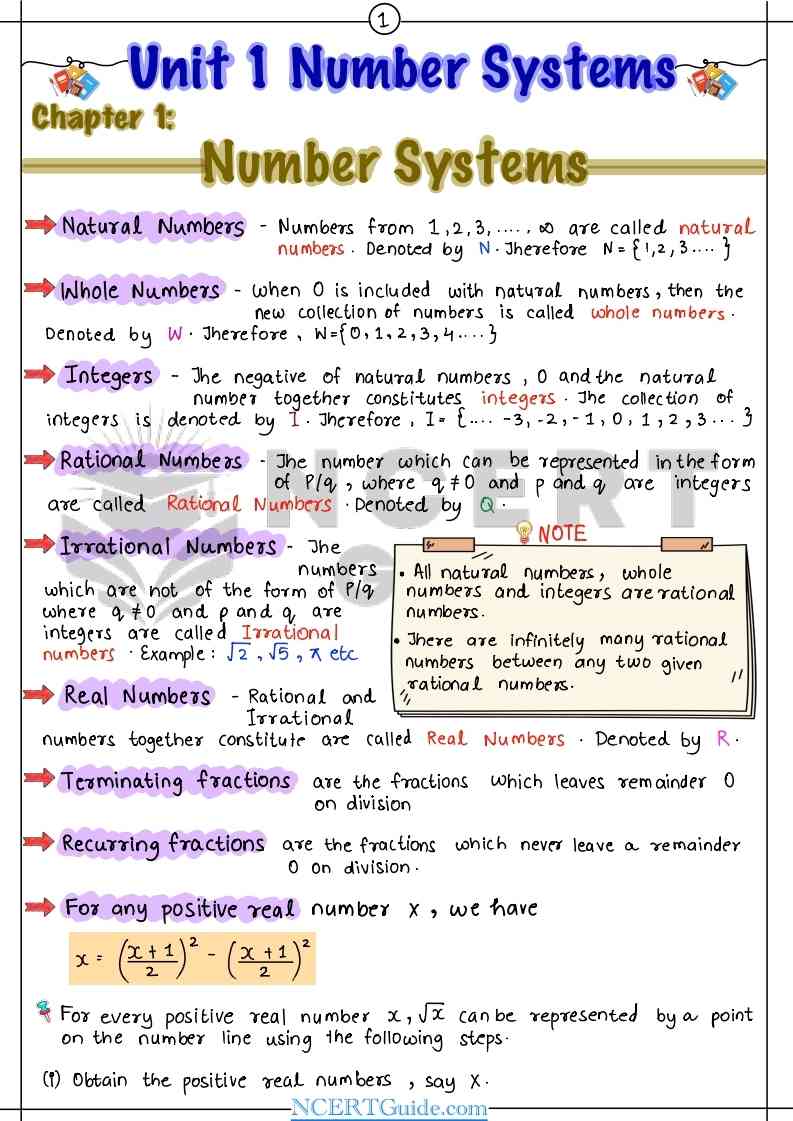 1
Unit 1 Number Systems
Chapter 1:
Number Systems
Natural Numbers - Numbers from 1,2,3,...., ∞ are called natural
numbers. Denoted by N. Therefore N = {1,2,3....}
Whole Numbers - when 0 is included with natural numbers, then the
new collection of numbers is called whole numbers.
Denoted by W. Therefore, W={0,1,2,3,4....}
Integers - The negative of natural numbers, 0 and the natural
number together constitutes integers. The collection of
integers is denoted by I. Therefore, I = {.... -3,-2,-1,0,1,2,3...}
Rational Numbers - The number which can be represented in the form
of P/q, where q ≠ 0 and p and q are integers
are called Rational Numbers. Denoted by Q.
NCERT
Irrational Numbers - The
numbers
which are not of the form of P/q
where q ≠ 0 and p and q are
integers are called Irrational
numbers. Example: √2, √5, π etc
NOTE
• All natural numbers, whole
numbers and integers are rational
numbers.
• There are infinitely many rational
numbers between any two given
rational numbers.
Real Numbers - Rational and
Irrational
numbers together constitute are called Real Numbers. Denoted by R.
Terminating fractions are the fractions which leaves remainder 0
on division
Recurring fractions are the fractions which never leave a remainder
0 on division.
For any positive real number x, we have
x = ((x+1)/2)² - ((x+1)/2)²
For every positive real number x, √x can be represented by a point
on the number line using the following steps.
(i) Obtain the positive real numbers, say x.
NCERTGuide.com